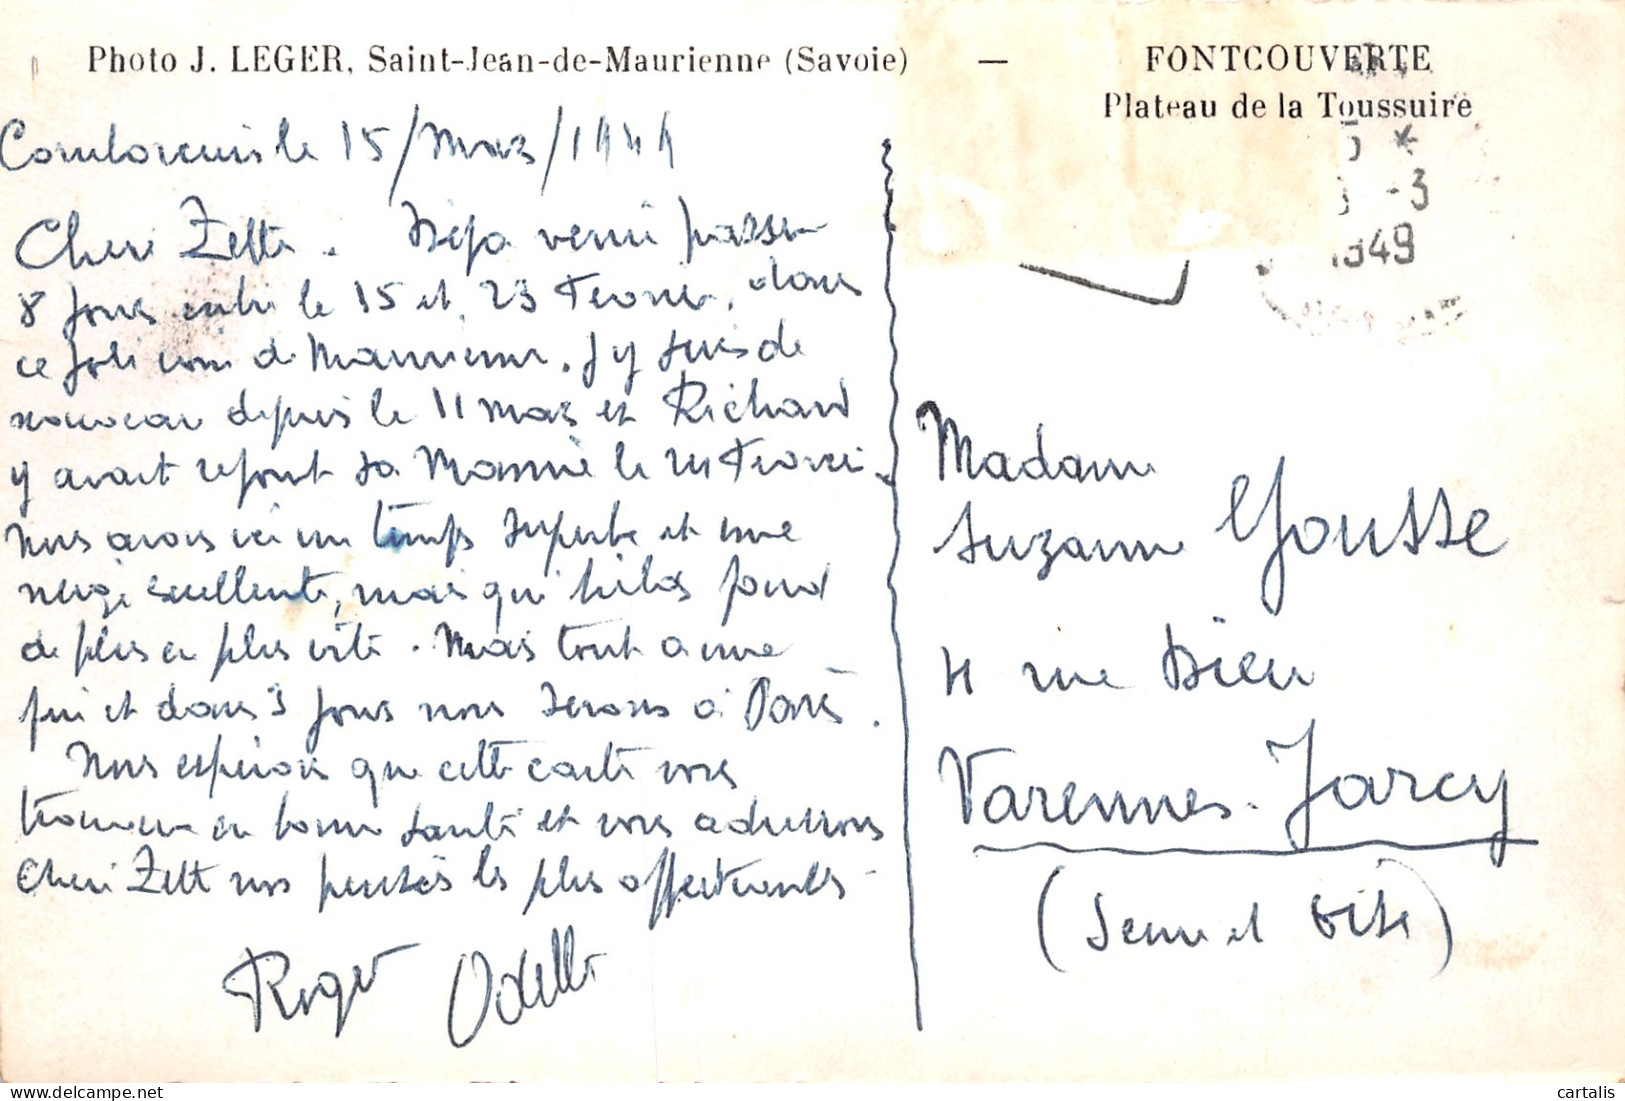 Photo J. LEGER, Saint-Jean-de-Maurienne (Savoie) — FONTCOUVERTE
Plateau de la Toussuire
le 15/Mars/1949
Cheri Zette. Déja venu passer
8 jours entre le 15 et 23 Fevrier, dans
ce joli coin de Maurienne. J'y suis de
nouveau depuis le 11 mars et Richard
y avait rejoint sa Mamie le Fevrier.
Nous avons ici un temps superbe et une
neige excellente, mais qui hélas fond
de plus en plus vite. Mais tout a une
fin et dans 3 jours nous serons à Paris.
Nous espérons que cette carte vous
trouvera en bonne santé et vous adressons
Cheri Zette nos pensées les plus affectueuses
Roger Odette
5 *
-3
1949
Madame
Suzanne Yousse
4 rue Dieu
Varennes-Jarcy
(Seine et Oise)
cartalis